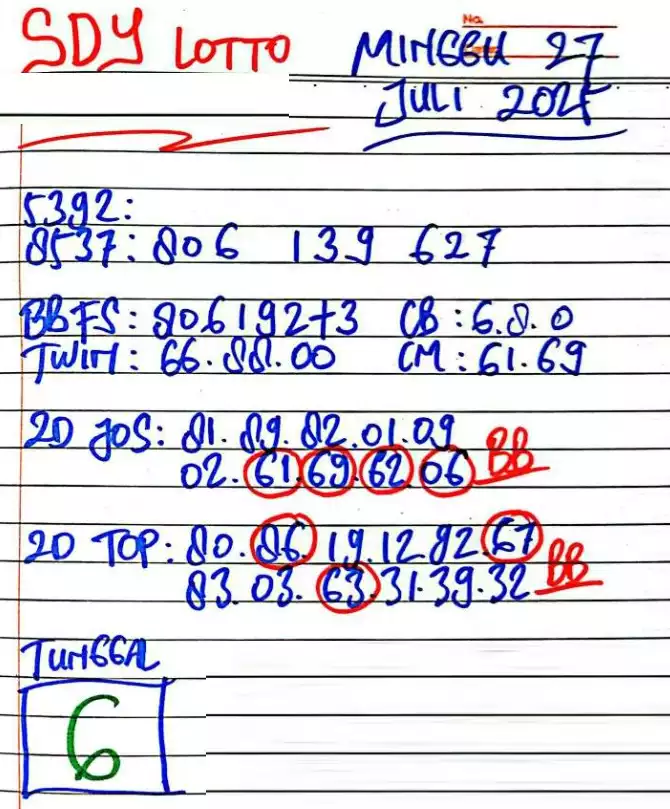 SDY LOTTO
No
MINGGU 27
JULI 2025
5392:
8537: 806 139 627
BBFS: 806192+3 CB: 6.8.0
TWIN: 66.88.00 CM: 61.69
2D JOS: 81.89.82.01.09
02.61.69.62.06 BB
2D TOP: 80.86.19.12.92.67
83.03.63.31.39.32 BB
TUNGGAL
6